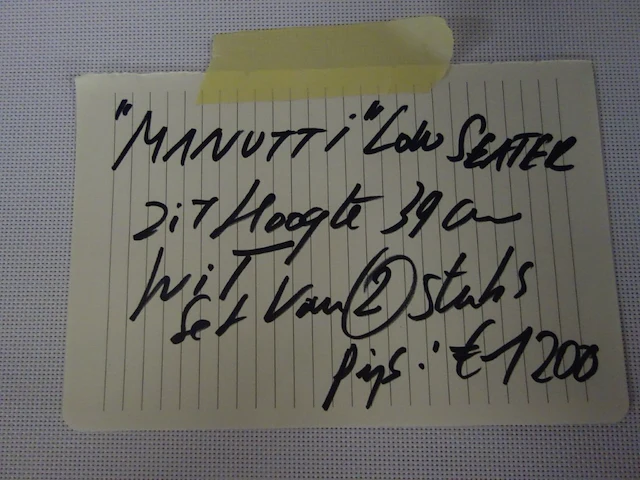 "MANUTTi" Low SEATER
ziT Hoogte 39 cm
WiT
Set Van 2 stuks
prijs: € 1200